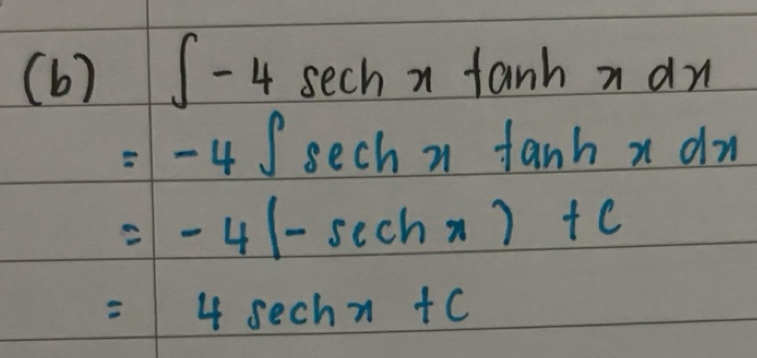 (b) ∫ -4 sech x tanh x dx
= -4 ∫ sech x tanh x dx
= -4 (- sech x) + C
= 4 sech x + C